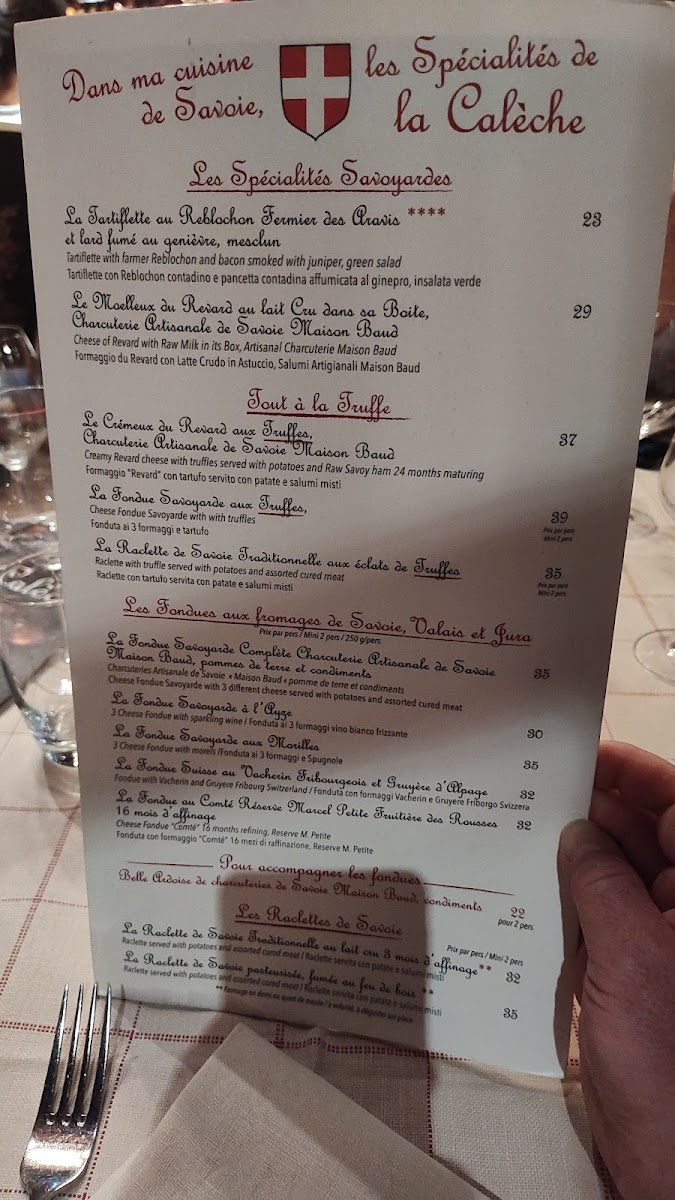 Dans ma cuisine
de Savoie,
les Spécialités de
la Calèche
Les Spécialités Savoyardes
La Tartiflette au Reblochon Fermier des Aravis **** 23
et lard fumé au genièvre, mesclun
Tartiflette with farmer Reblochon and bacon smoked with juniper, green salad
Tartiflette con Reblochon contadino e pancetta contadina affumicata al ginepro, insalata verde
Le Moelleux du Revard au lait Cru dans sa Boite, 29
Charcuterie Artisanale de Savoie Maison Baud
Cheese of Revard with Raw Milk in its Box, Artisanal Charcuterie Maison Baud
Formaggio du Revard con Latte Crudo in Astuccio, Salumi Artigianali Maison Baud
Tout à la Truffe
Le Crémeux du Revard aux Truffes, 37
Charcuterie Artisanale de Savoie Maison Baud
Creamy Revard cheese with truffles served with potatoes and Raw Savoy ham 24 months maturing
Formaggio "Revard" con tartufo servito con patate e salumi misti
La Fondue Savoyarde aux Truffes, 39
Cheese Fondue Savoyarde with with truffles Prix par pers
Fonduta ai 3 formaggi e tartufo Mini 2 pers
La Raclette de Savoie Traditionnelle aux éclats de Truffes 35
Raclette with truffle served with potatoes and assorted cured meat Prix par pers
Raclette con tartufo servita con patate e salumi misti Mini 2 pers
Les Fondues aux fromages de Savoie, Valais et Jura
Prix par pers / Mini 2 pers / 250 g/pers.
La Fondue Savoyarde Complète Charcuterie Artisanale de Savoie 35
Maison Baud, pommes de terre et condiments
Charcuteries Artisanale de Savoie « Maison Baud « pomme de terre et condiments
Cheese Fondue Savoyarde with 3 different cheese served with potatoes and assorted cured meat
La Fondue Savoyarde à l'Ayze 30
3 Cheese Fondue with sparkling wine / Fonduta ai 3 formaggi vino bianco frizzante
La Fondue Savoyarde aux Morilles 35
3 Cheese Fondue with morels /Fonduta ai 3 formaggi e Spugnole
La Fondue Suisse au Vacherin Fribourgeois et Gruyère d'Alpage 32
Fondue with Vacherin and Gruyere Fribourg Switzerland / Fonduta con formaggi Vacherin e Gruyere Friborgo Svizzera
La Fondue au Comté Réserve Marcel Petite Fruitière des Rousses 32
16 mois d'affinage
Cheese Fondue "Comté" 16 months refining, Reserve M. Petite
Fonduta con formaggio "Comté" 16 mezi di raffinazione, Reserve M. Petite
Pour accompagner les fondues
Belle Ardoise de charcuteries de Savoie Maison Baud, condiments 22
pour 2 pers.
Les Raclettes de Savoie
Prix par pers / Mini 2 pers
La Raclette de Savoie Traditionnelle au lait cru 3 mois d'affinage ** 32
Raclette served with potatoes and assorted cured meat / Raclette servita con patate e salumi misti
La Raclette de Savoie pasteurisée, fumée au feu de bois ** 35
Raclette served with potatoes and assorted cured meat / Raclette servita con patate e salumi misti
** Fromage en demi ou quart de meule / à volonté, à déguster sur place